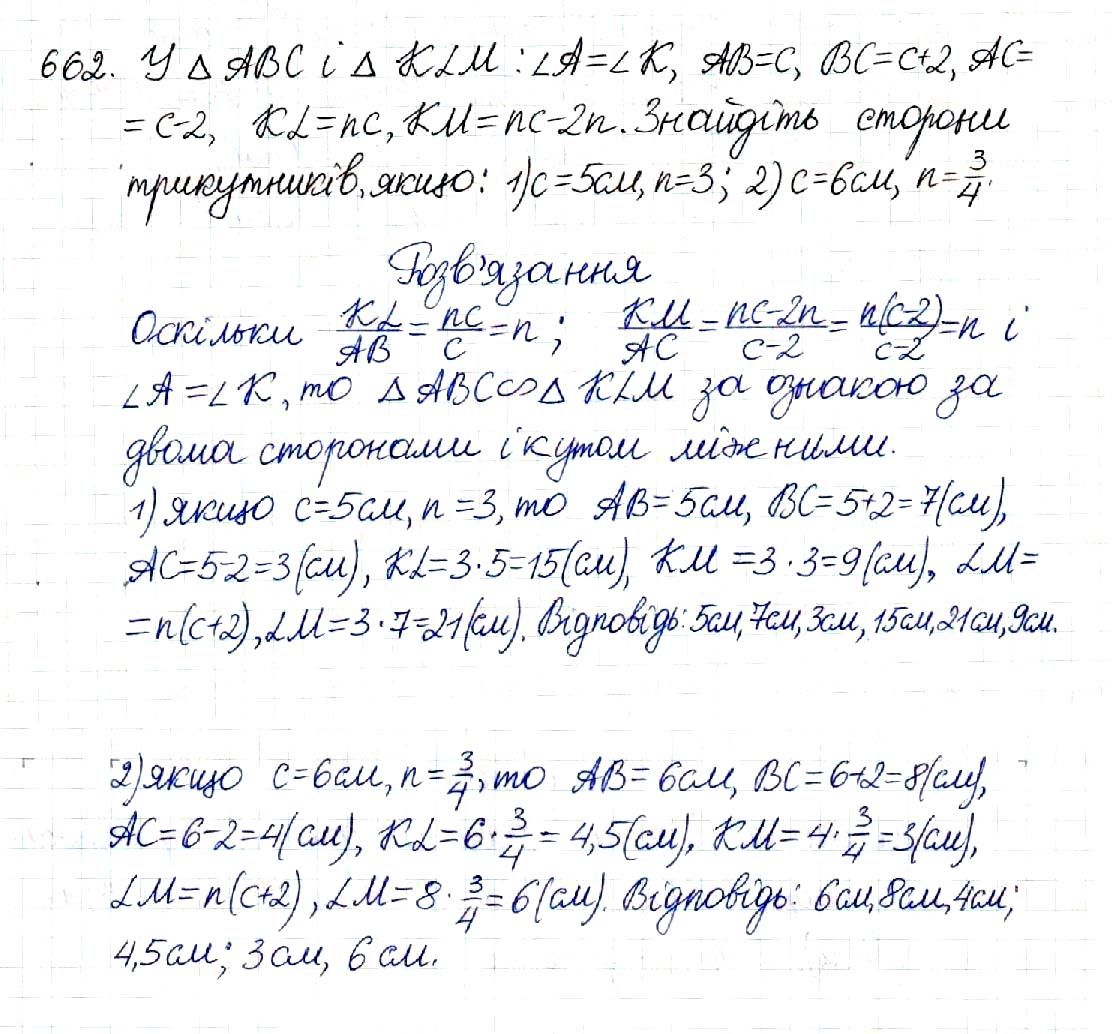 662. У △ ABC і △ KLM : ∠A=∠K, AB=c, BC=c+2, AC=
= c-2, KL=nc, KM=nc-2n. Знайдіть сторони
трикутників, якщо: 1) c=5см, n=3; 2) c=6см, n=3/4.
Розв'язання
Оскільки KL/AB = nc/c = n ; KM/AC = nc-2n/c-2 = n(c-2)/c-2 = n і
∠A =∠K, то △ ABC∽△ KLM за ознакою за
двома сторонами і кутом між ними.
1) якщо c=5см, n =3, то AB=5см, BC=5+2=7(см),
AC=5-2=3(см), KL=3·5=15(см), KM =3·3=9(см), LM=
=n(c+2), LM=3·7=21(см). Відповідь: 5см, 7см, 3см, 15см, 21см, 9см.
2) якщо c=6см, n=3/4, то AB=6см, BC=6+2=8(см),
AC=6-2=4(см), KL=6·3/4=4,5(см), KM=4·3/4=3(см),
LM=n(c+2), LM=8·3/4=6(см). Відповідь: 6см, 8см, 4см;
4,5см; 3см, 6см.